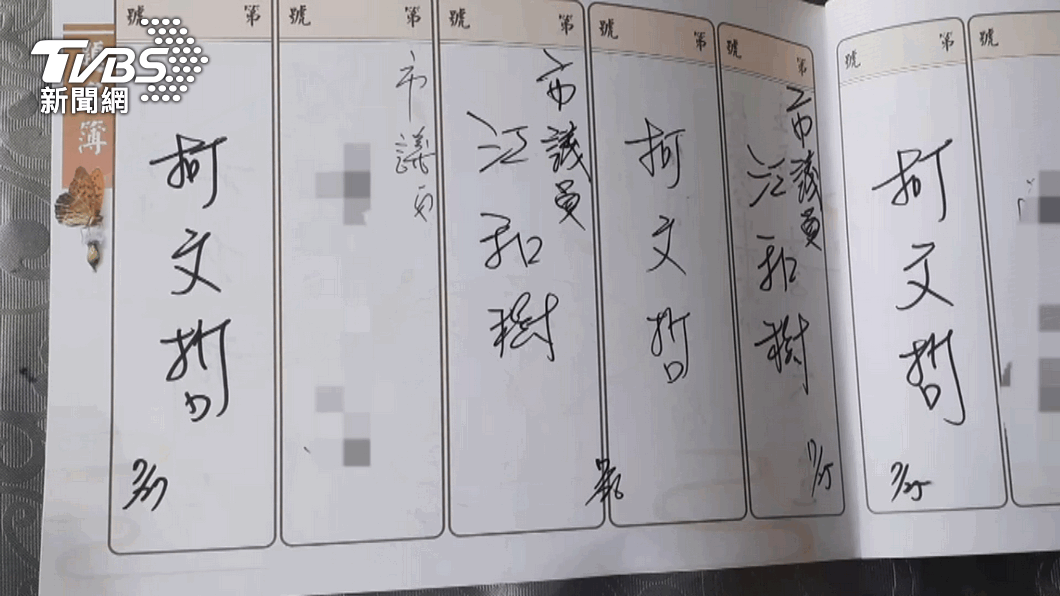 TVBS
新聞網
號
第 號
柯文哲
7/25
第 號
市議員
江和樹
7/25
第 號
柯文哲
第 號
市議員
江和樹
第 號
市議員
第 號
柯文哲
7/27
簿